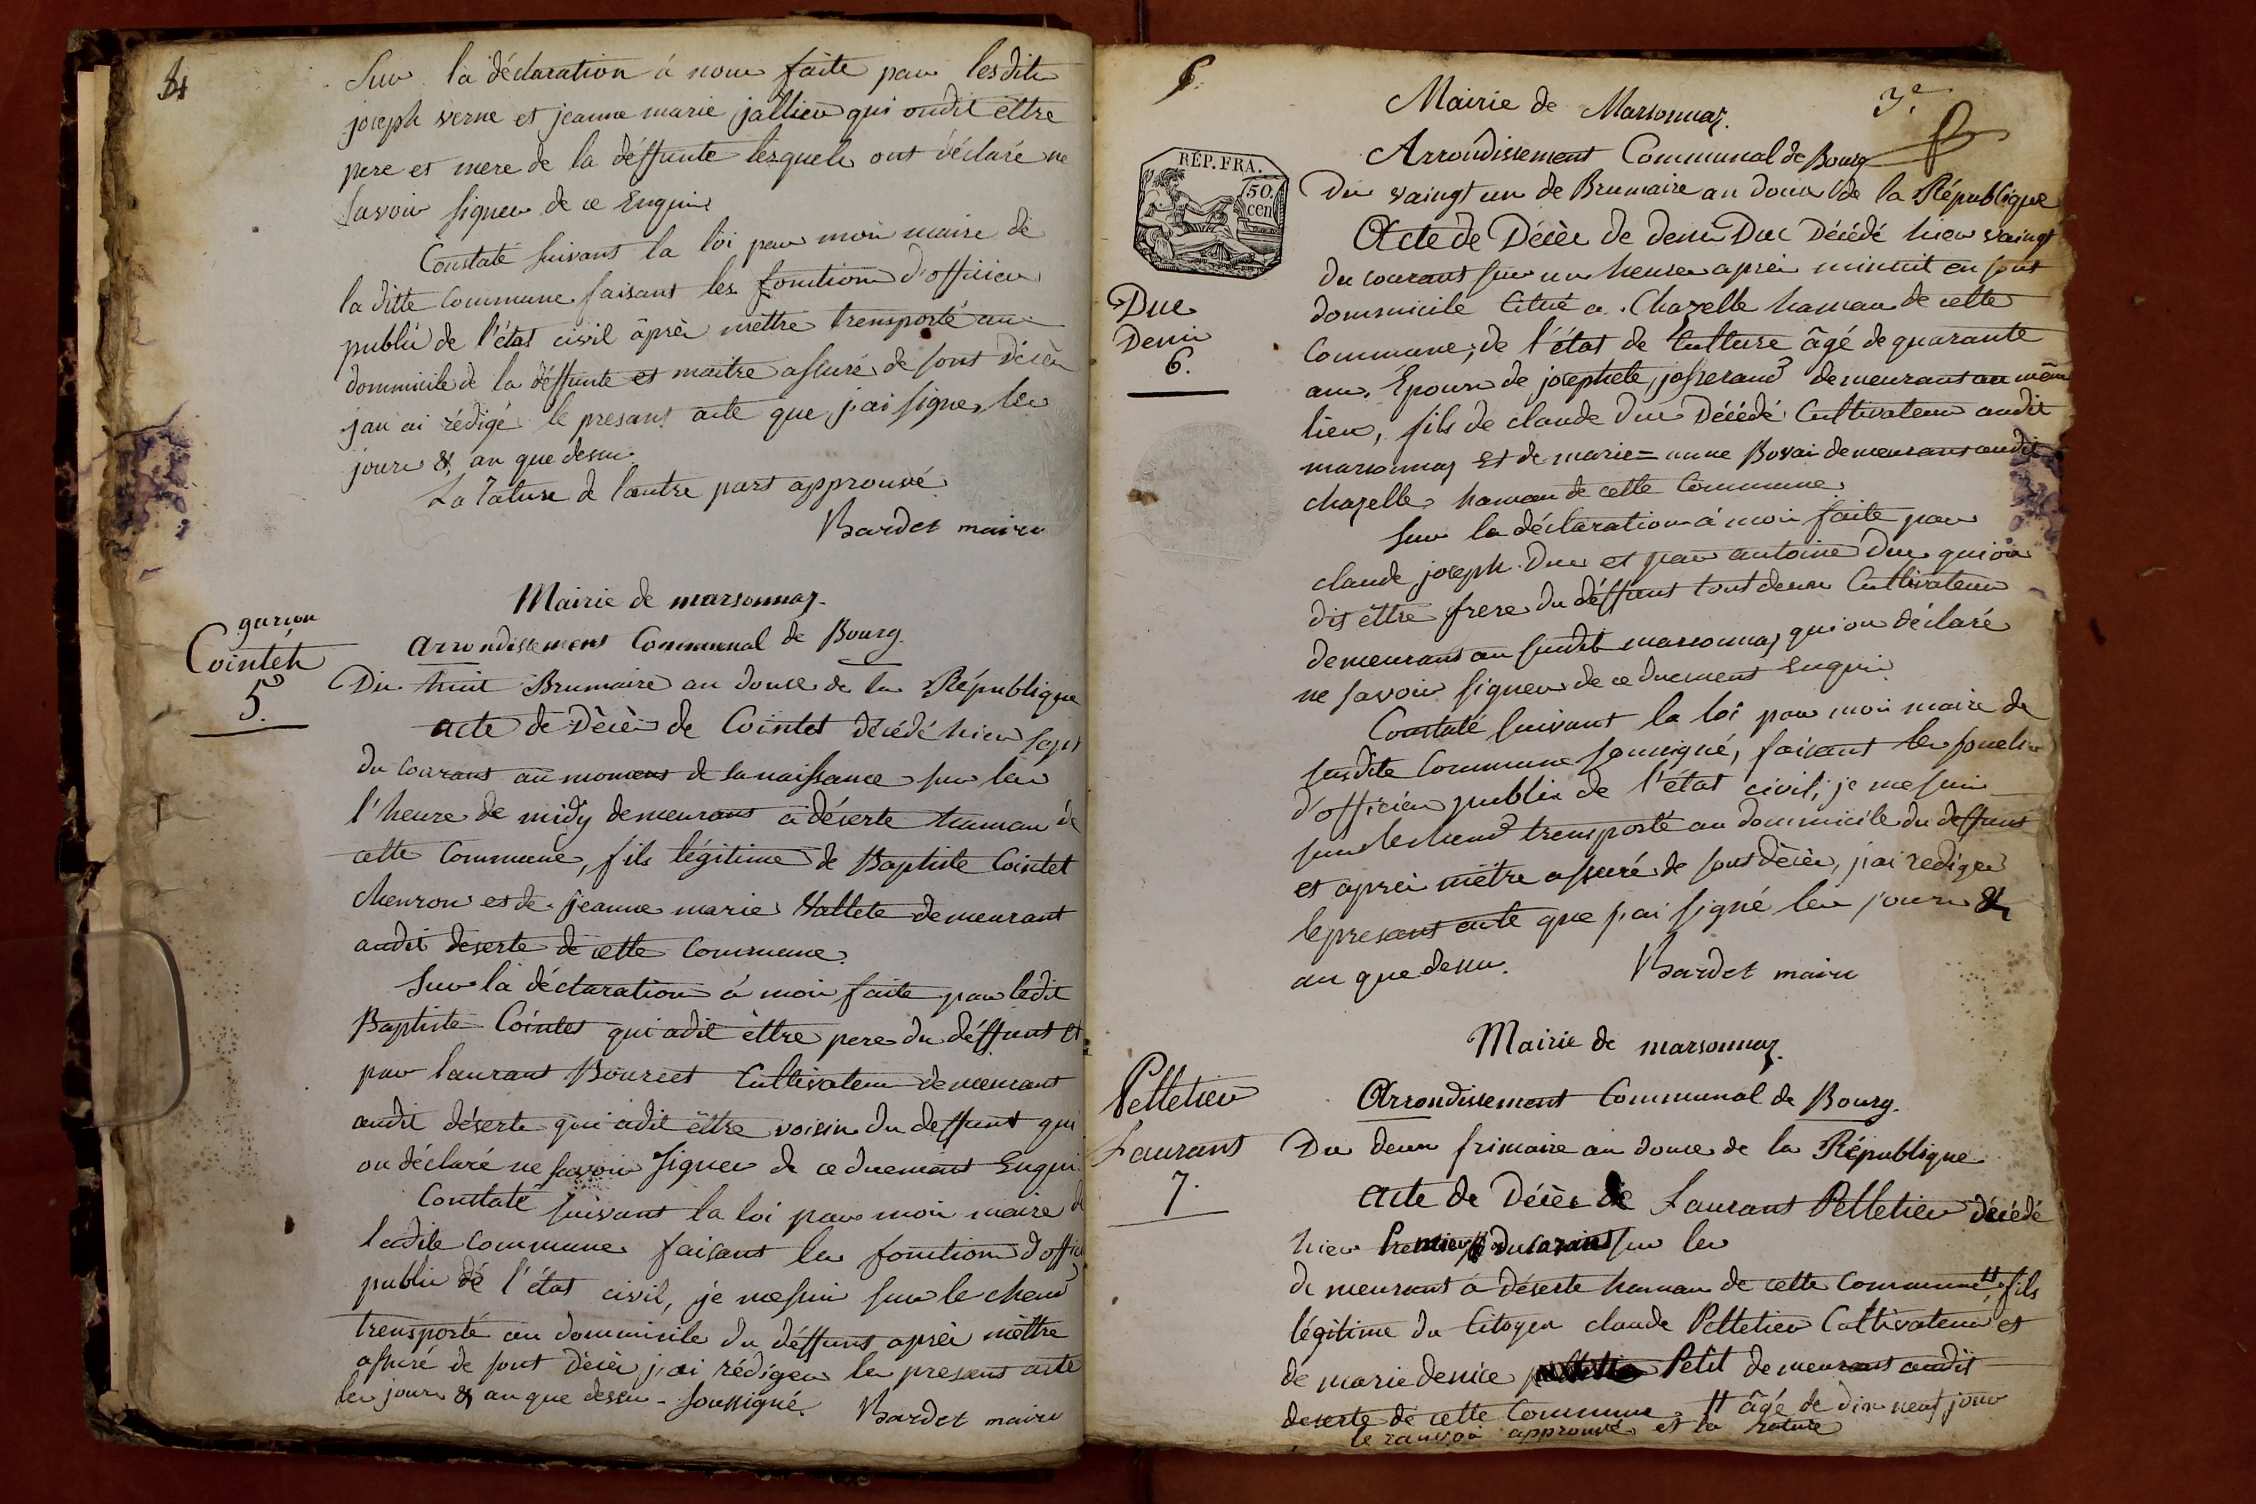 4
Sur la déclaration à nous faite par lesdits
joseph verne et jeanne marie jallieu qui ondit êttre
pere et mere de la déffunte lesquels ont déclaré ne
Savoir signer de ce Enquis
Constaté suivant la loi par moi maire de
la ditte Commune faisant les fonctions d'officier
public de l'état civil âprès mêttre transporté au
dommicile de la déffunte et maître assuré de sont décès
jan ai rédigé le presant acte que j'ai signé, les
jours & an que dessus
La rature de l'autre part approuvé
Bardet maire
garçon
Cointet
5.
Mairie de marsonnaz.
arrondissement Communal de Bourg.
Du huit Brumaire an douze de la République
acte de Décès de Cointet décédé hier sept
du courant au moment de sa naissance sur les
l'heure de midy demeurant à déserte hamau de
cette Commune, fils légitime de Baptiste Cointet
charron et de jeanne marie Vallete demeurant
audit deserte de cette Commune.
Sur la déclaration à moi faite par ledit
Baptiste Cointet qui adit êttre pere du déffunt et
par laurant Bourcet Cultivateur demeurant
audit déserte qui adit êttre voisin du deffunt qui
on déclaré ne savoir signer de ce duement Enquis
Constaté suivant la loi par moi maire de
ladite commune faisant les fonctions d'offici
public de l'état civil, je me suis sur le chend
transporté au dommicile du déffunt après mêttre
assuré de sont décès j'ai rédiger le present acte
les jours & an que dessus - soussigné. Bardet maire
Mairie de Marsonnaz.
3e
Arrondissement Communal de Bourg
RÉP. FRA.
50.
cen
Du vaingt un de Brumaire an douze de la République
Acte de Décès de denis Duc Décédé hier vaingt
du courant sur un heures après minuit en sont
dommicile Citué a Chazelle hamau de cette
Commune, de l'état de Culture âgé de quarante
ans, Epoux de josephete josserand demeurant au même
lieu, fils de claude duc Décédé Cultivateur audit
marsonnaz Et de marie=anne Bovai demeurant audit
chazelle hamau de cette Commune.
Duc
Denis
6.
Sur la déclaration à moi faite par
claude joseph Duc et par antoine Duc qui on
dit êttre frere du déffunt tout deux Cultivateur
demeurant au sudit marsonnaz qui on déclaré
ne savoir signer de ce duement Enquis.
Constaté suivant la loi par moi maire de
susdite Commune soussigné, faisant les fonction
d'officier public de l'état civil, je me suis
sur le chend transporté au dommicile du deffunt
et après mêttre assuré de sont décès, j'ai rediger
le presant acte que j'ai signé les jours &
an que dessus. Bardet maire
Mairie de marsonnaz.
Arrondissement Communal de Bourg.
Pelletier
Laurant
7.
Du deux frimaire an douze de la République
acte de Décès de Laurant Pelletier décédé
hier Premier du courant sur les
demeurant à déserte hamau de cette Commune # fils
légitime du Citoyen claude Pelletier Cultivateur et
de marie denise Petit demeurant audit
deserte de cette Commune. # âgé de dix neuf jours
le ranvoi approuvé et la rature